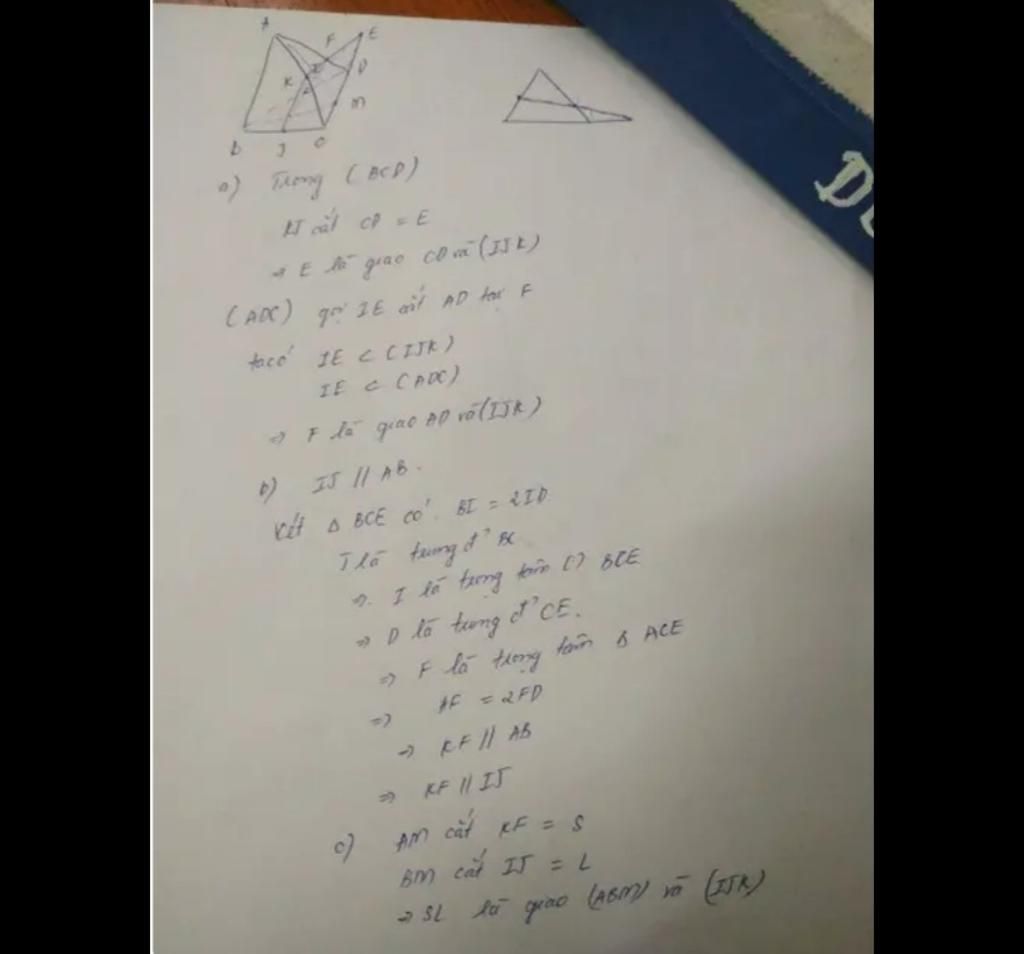 A
F
E
K
D
M
B
J
C
a) Trong (BCD)
KJ cắt CD = E
⇒ E là giao CD và (IJK)
(ADC) gọi IE cắt AD tại F
ta có IE ⊂ (IJK)
IE ⊂ (ADC)
⇒ F là giao AD và (IJK)
b) IJ // AB.
Xét Δ BCE có. BI = 2ID
J là trung đ' BC
⇒. I là trọng tâm BCE
⇒ D là trung đ' CE.
⇒ F là trọng tâm Δ ACE
⇒ AF = 2FD
⇒ KF // AB
⇒ KF // IJ
c) AM cắt KF = S
BM cắt IJ = L
⇒ SL là giao (ABM) và (IJK)